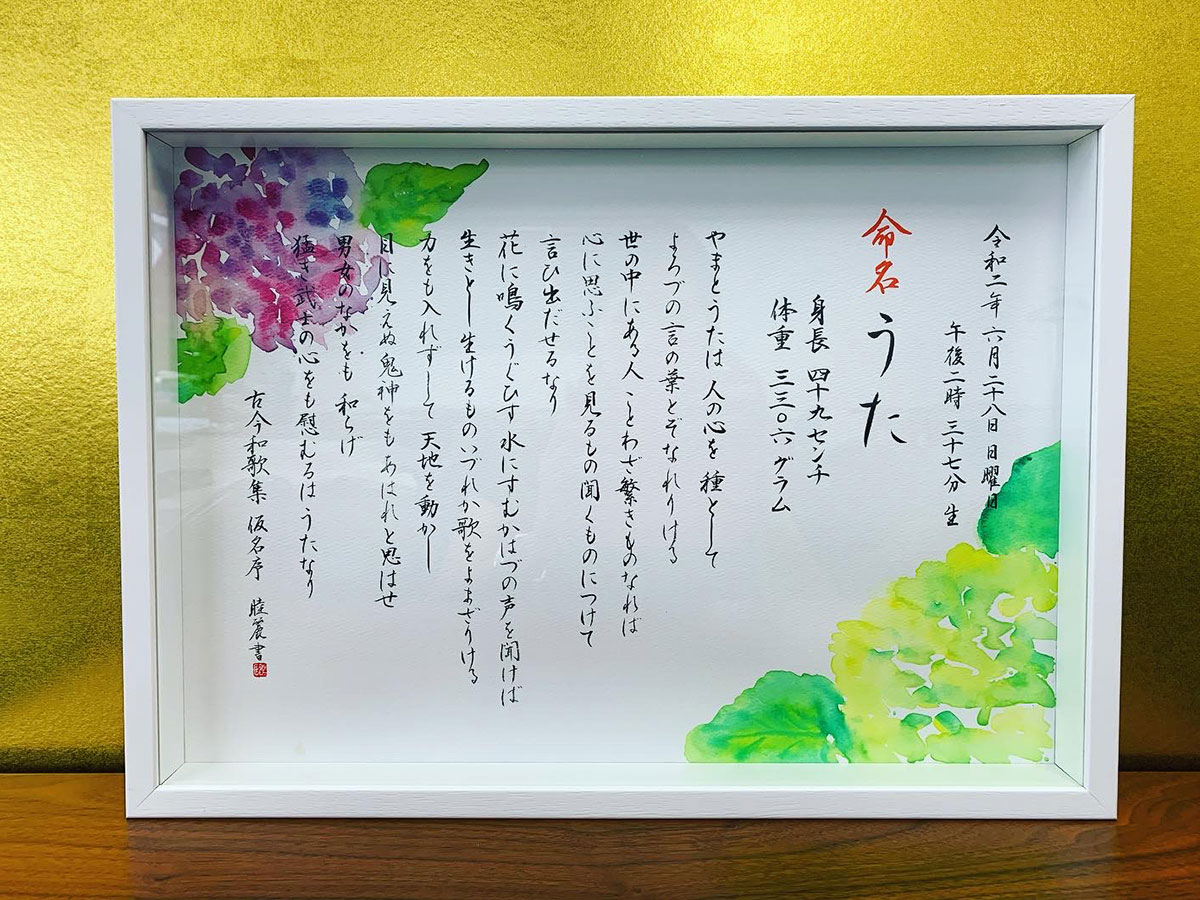 令和二年 六月二十八日 日曜日
午後二時 三十七分 生
命名 うた
身長 四十九センチ
体重 三三〇六グラム
やまとうたは 人の心を 種として
よろづの言の葉とぞなれりける
世の中にある人 ことわざ繁きものなれば
心に思ふことを見るもの聞くものにつけて
言ひ出だせるなり
花に鳴くうぐひす 水にすむかはづの声を聞けば
生きとし生けるものいづれか歌をよまざりける
力をも入れずして 天地を動かし
目に見えぬ鬼神をも あはれと思はせ
男女のなかをも 和らげ
猛き武士の心をも慰むるはうたなり
古今和歌集 仮名序 睦篭書